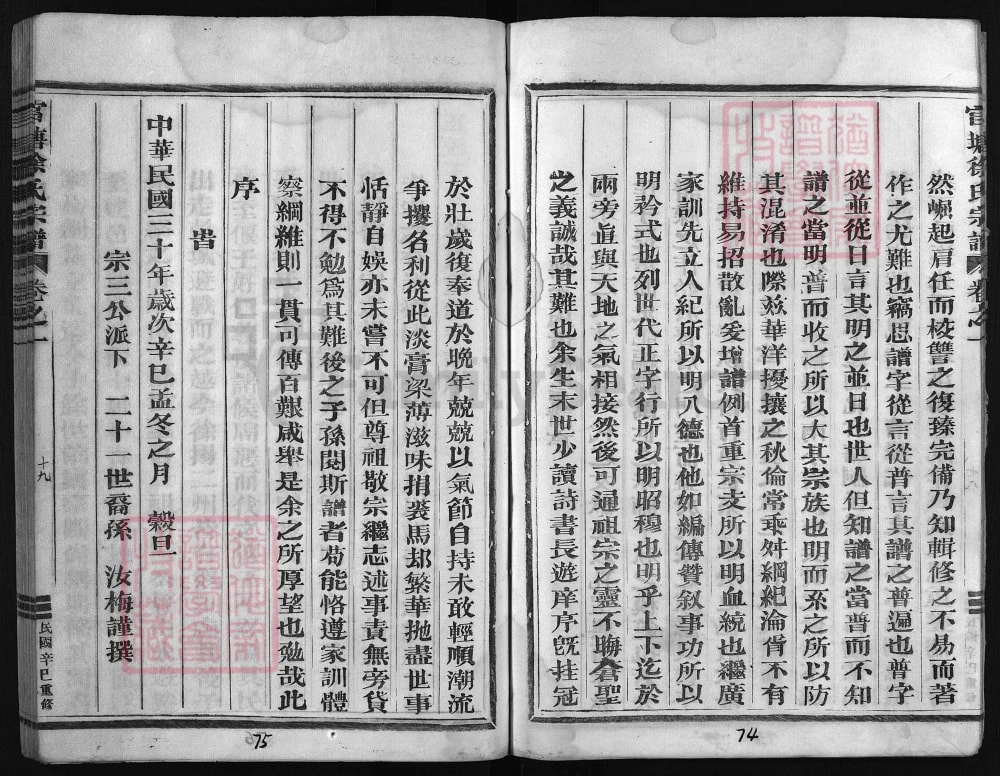 官塘徐氏宗譜 卷之一
然崛起肩任而校讐之復臻完備乃知輯修之不易而著
作之尤難也竊思譜字從言從普言其譜之普遍也普字
從並從日言其明之並日也世人但知譜之當普而不知
譜之當明普而收之所以大其宗族也明而系之所以防
其混淆也際兹華洋擾攘之秋倫常乖舛綱紀淪胥不有
維持易招散亂爰增譜例首重宗支所以明血統也繼廣
家訓先立人紀所以明八德也他如編傳贊敘事功所以
明矜式也列世代正字行所以明昭穆也明乎上下迄於
兩旁直與天地之氣相接然後可通祖宗之靈不晦倉聖
之義誠哉其難也余生末世少讀詩書長遊庠序旣挂冠
於壯歲復奉道於晚年兢兢以氣節自持未敢輕順潮流
爭攫名利從此淡膏粱薄滋味捐裘馬却繁華拋盡世事
恬靜自娛亦未嘗不可但尊祖敬宗繼志述事責無旁貸
不得不勉爲其難後之子孫閱斯譜者苟能恪遵家訓體
察綱維則一貫可傳百艱咸舉是余之所厚望也勉哉此
序
旹
中華民國三十年歲次辛巳孟冬之月 穀旦
宗三公派下 二十一世裔孫 汝梅謹撰
官塘徐氏宗譜 卷之一
十九
民國辛巳重修
75
74